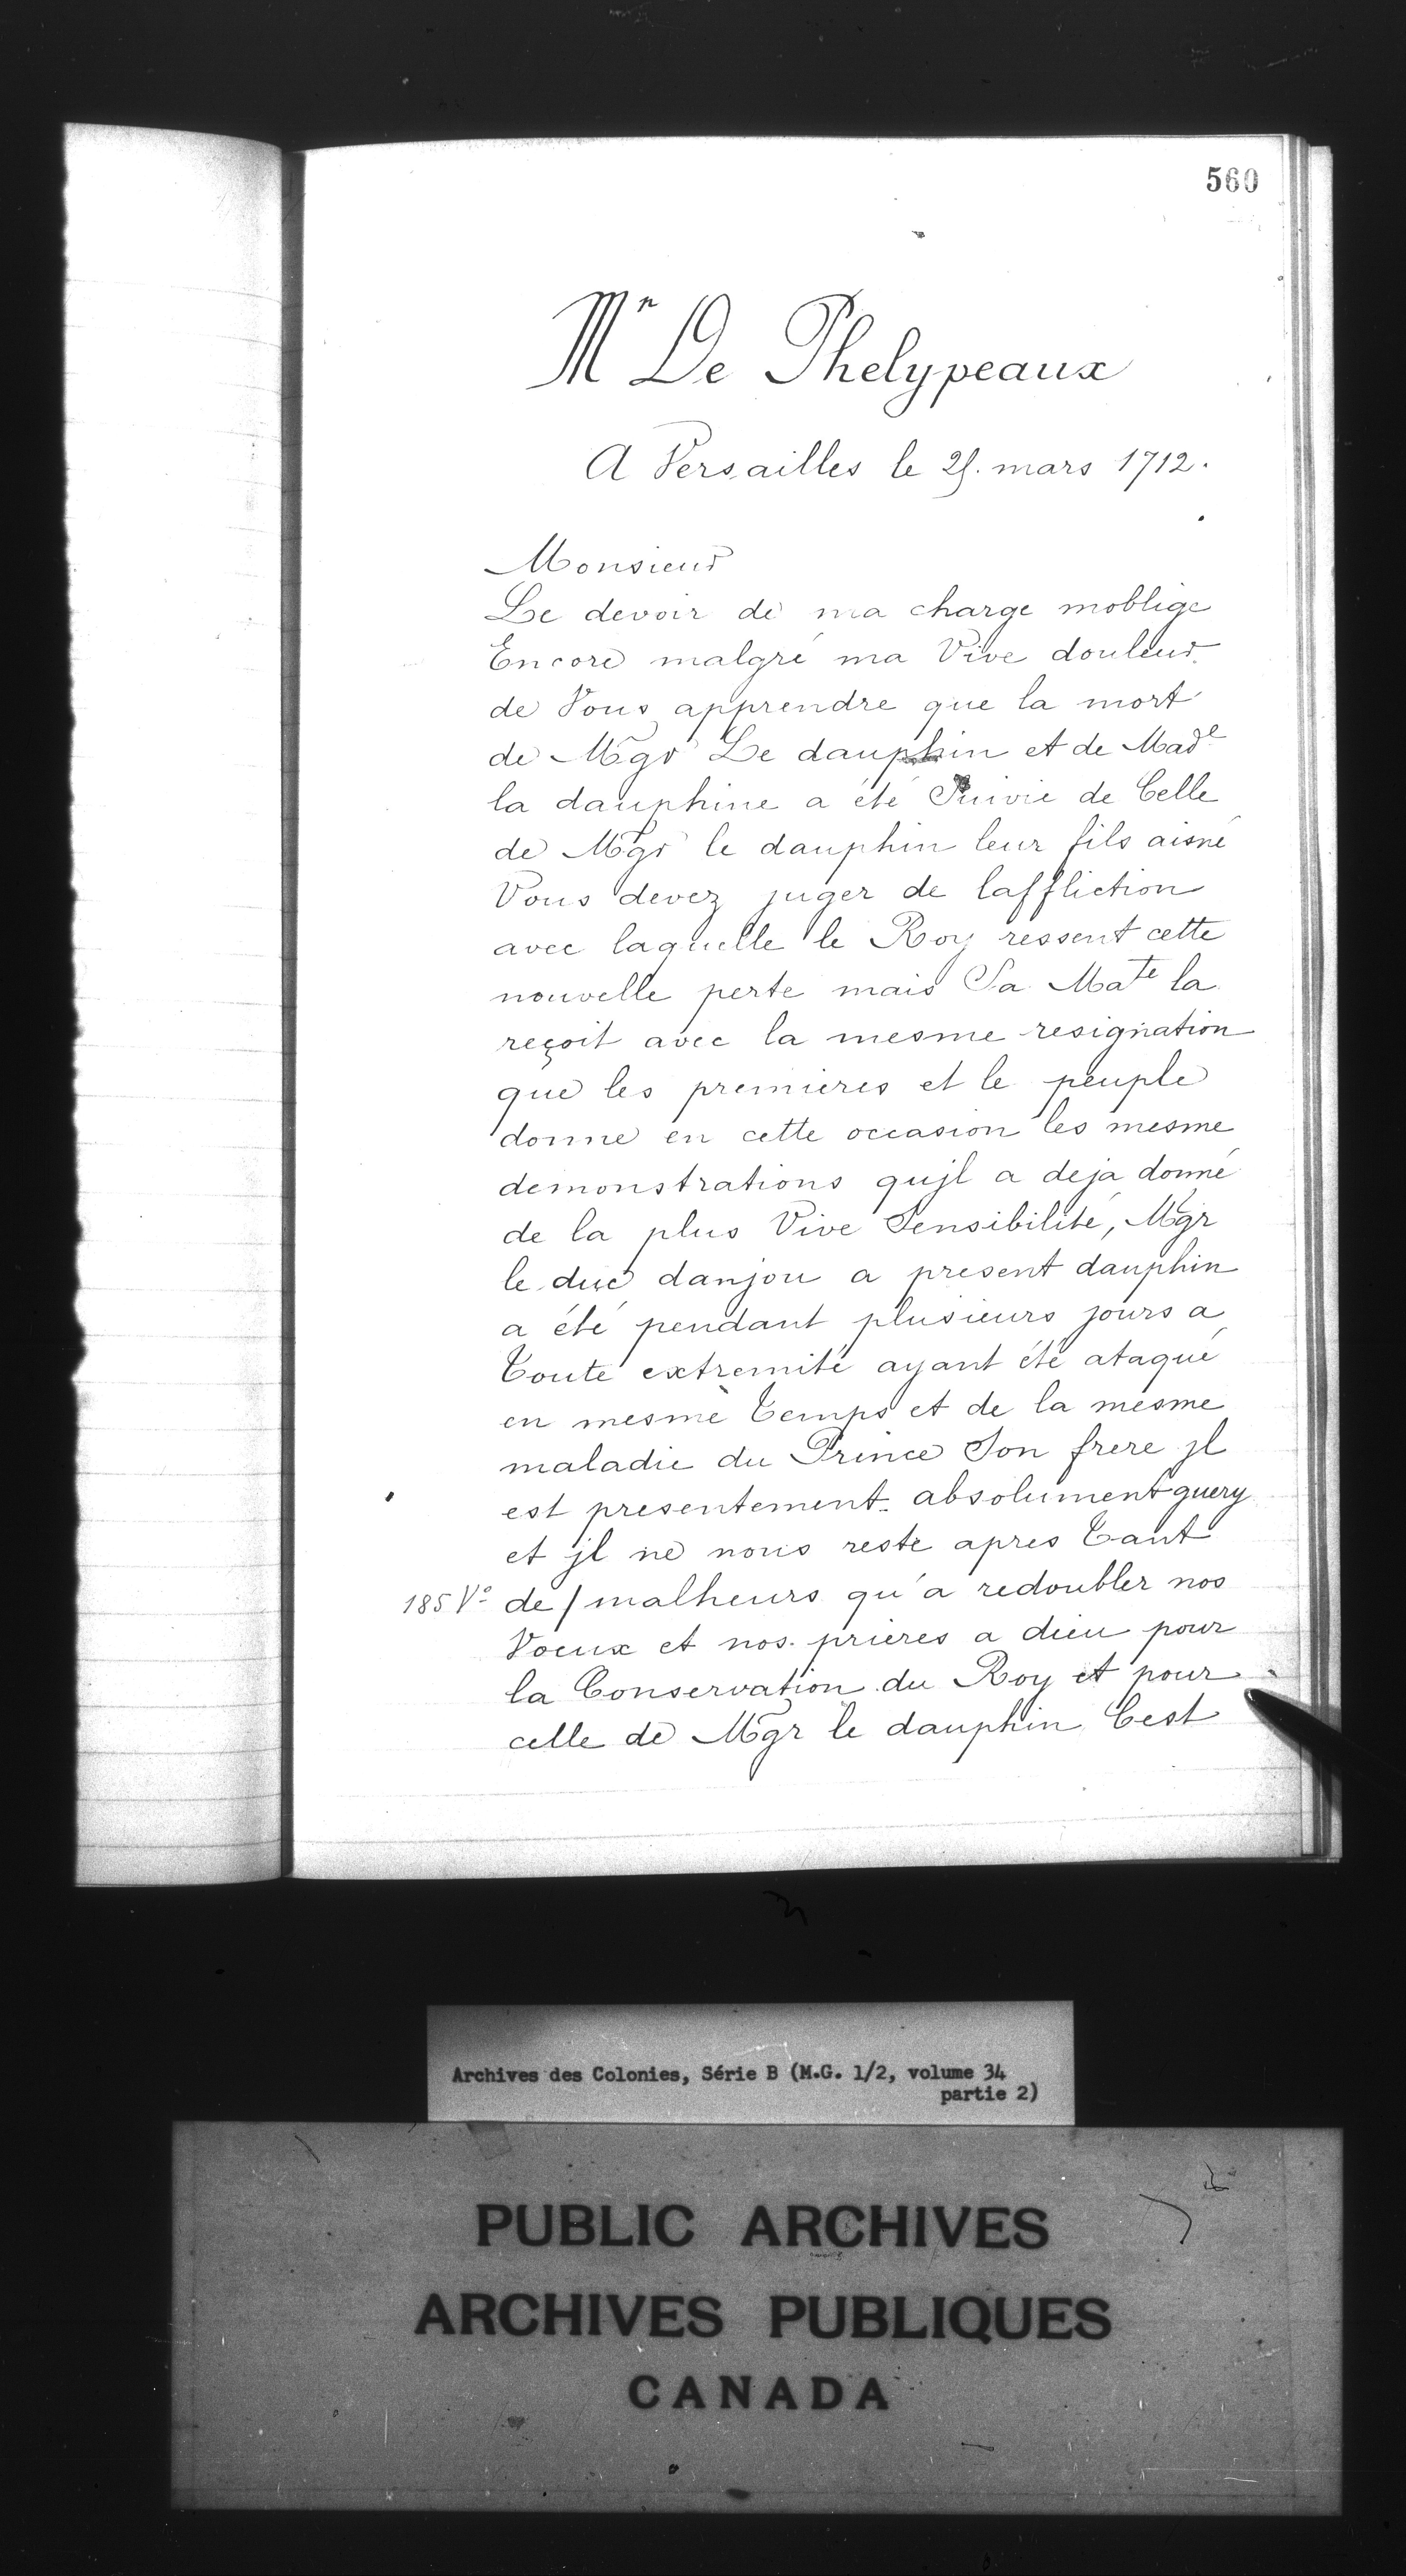 560
Mr De Phelypeaux
A Versailles le 25. mars 1712.
Monsieur
Le devoir de ma charge moblige
Encore malgré ma Vive douleur
de Vous apprendre que la mort
de Mgr Le dauphin et de Made
la dauphine a été Suivie de Celle
de Mgr le dauphin leur fils aisné
Vous devez juger de laffliction
avec laquelle le Roy ressent cette
nouvelle perte mais Sa Mate la
reçoit avec la mesme resignation
que les premieres et le peuple
donne en cette occasion les mesme
demonstrations qujl a deja donné
de la plus Vive Sensibilité, Mgr
le duc danjou a present dauphin
a été pendant plusieurs jours a
Toute extremité ayant été ataqué
en mesme Temps et de la mesme
maladie du Prince Son frere jl
est presentement absolument guery
et jl ne nous reste apres Tant
185 Vo de / malheurs qu'a redoubler nos
Voeux et nos prieres a dieu pour
la Conservation du Roy et pour
celle de Mgr le dauphin Cest
Archives des Colonies, Série B (M.G. 1/2, volume 34
partie 2)
PUBLIC ARCHIVES
ARCHIVES PUBLIQUES
CANADA